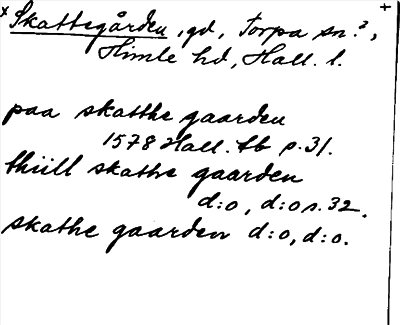 x Skattegården, gd, Torpa sn.?, +
Himle hd, Hall. l.
paa skatthe gaarden
1578 Hall. tb s. 31.
thiill skathe gaarden
d:o, d:o s. 32.
skathe gaarden d:o, d:o.